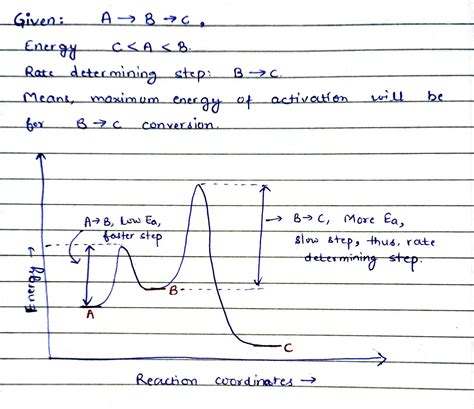 Given: A → B → C,
Energy C < A < B.
Rate determining step: B → C.
Means, maximum energy of activation will be
for B → C conversion.
A → B, Low Ea,
faster step
→ B → C, More Ea,
slow step, thus, rate
determining step.
Energy →
A
B
C
Reaction coordinates →